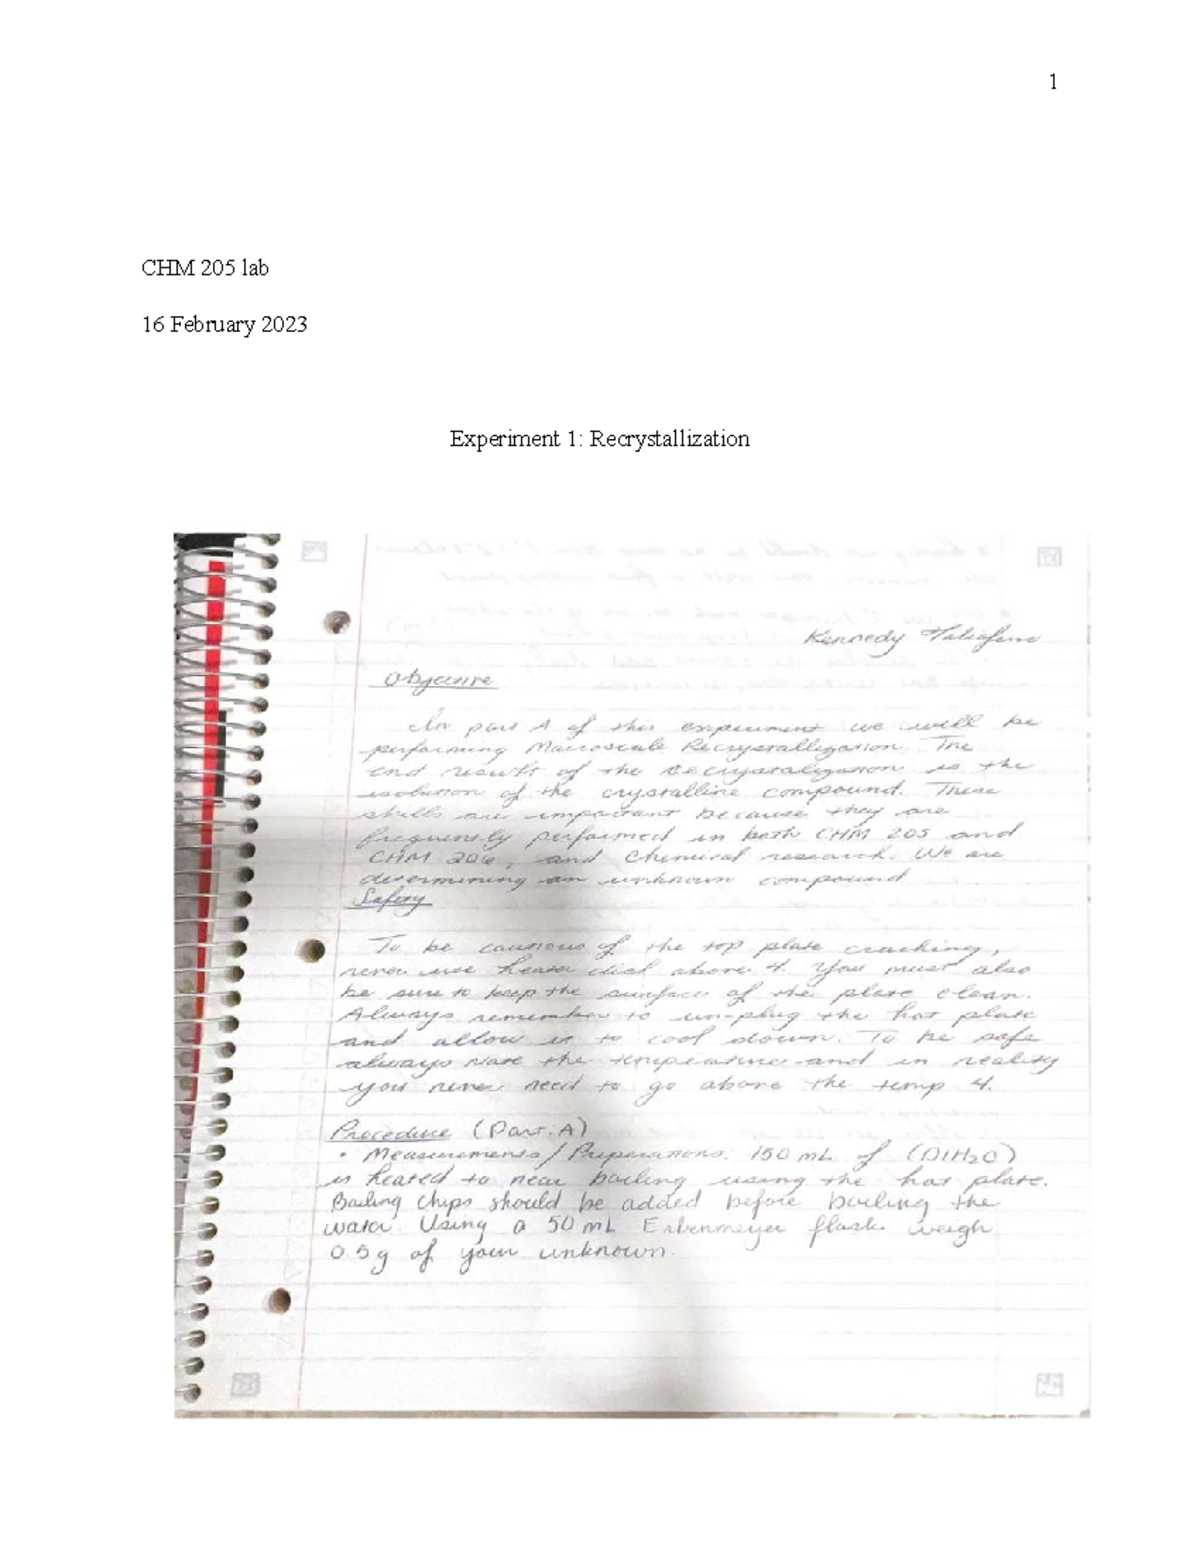 1
CHM 205 lab
16 February 2023
Experiment 1: Recrystallization
Kennedy
Objective
In part A of this experiment we will be
performing Macroscale Recrystallization. The
end result of the recrystalization is the
isolation of the crystalline compound. These
skills are important because they are
frequently performed in both CHM 205 and
CHM 206, and Chemical research. We are
determining an unknown compound
Safety
To be cautious of the top plate cracking,
never use heater dial above 4. You must also
be sure to keep the surface of the plate clean.
Always remember to un-plug the hot plate
and allow it to cool down. To be safe
always note the temperature and in reality
you never need to go above the temp 4.
Procedure (Part. A)
• Measurements/Preparations. 150 mL of (DIH2O)
is heated to near boiling using the hot plate.
Boiling Chips should be added before boiling the
water. Using a 50 mL Erlenmeyer flask weigh
0.5g of your unknown.